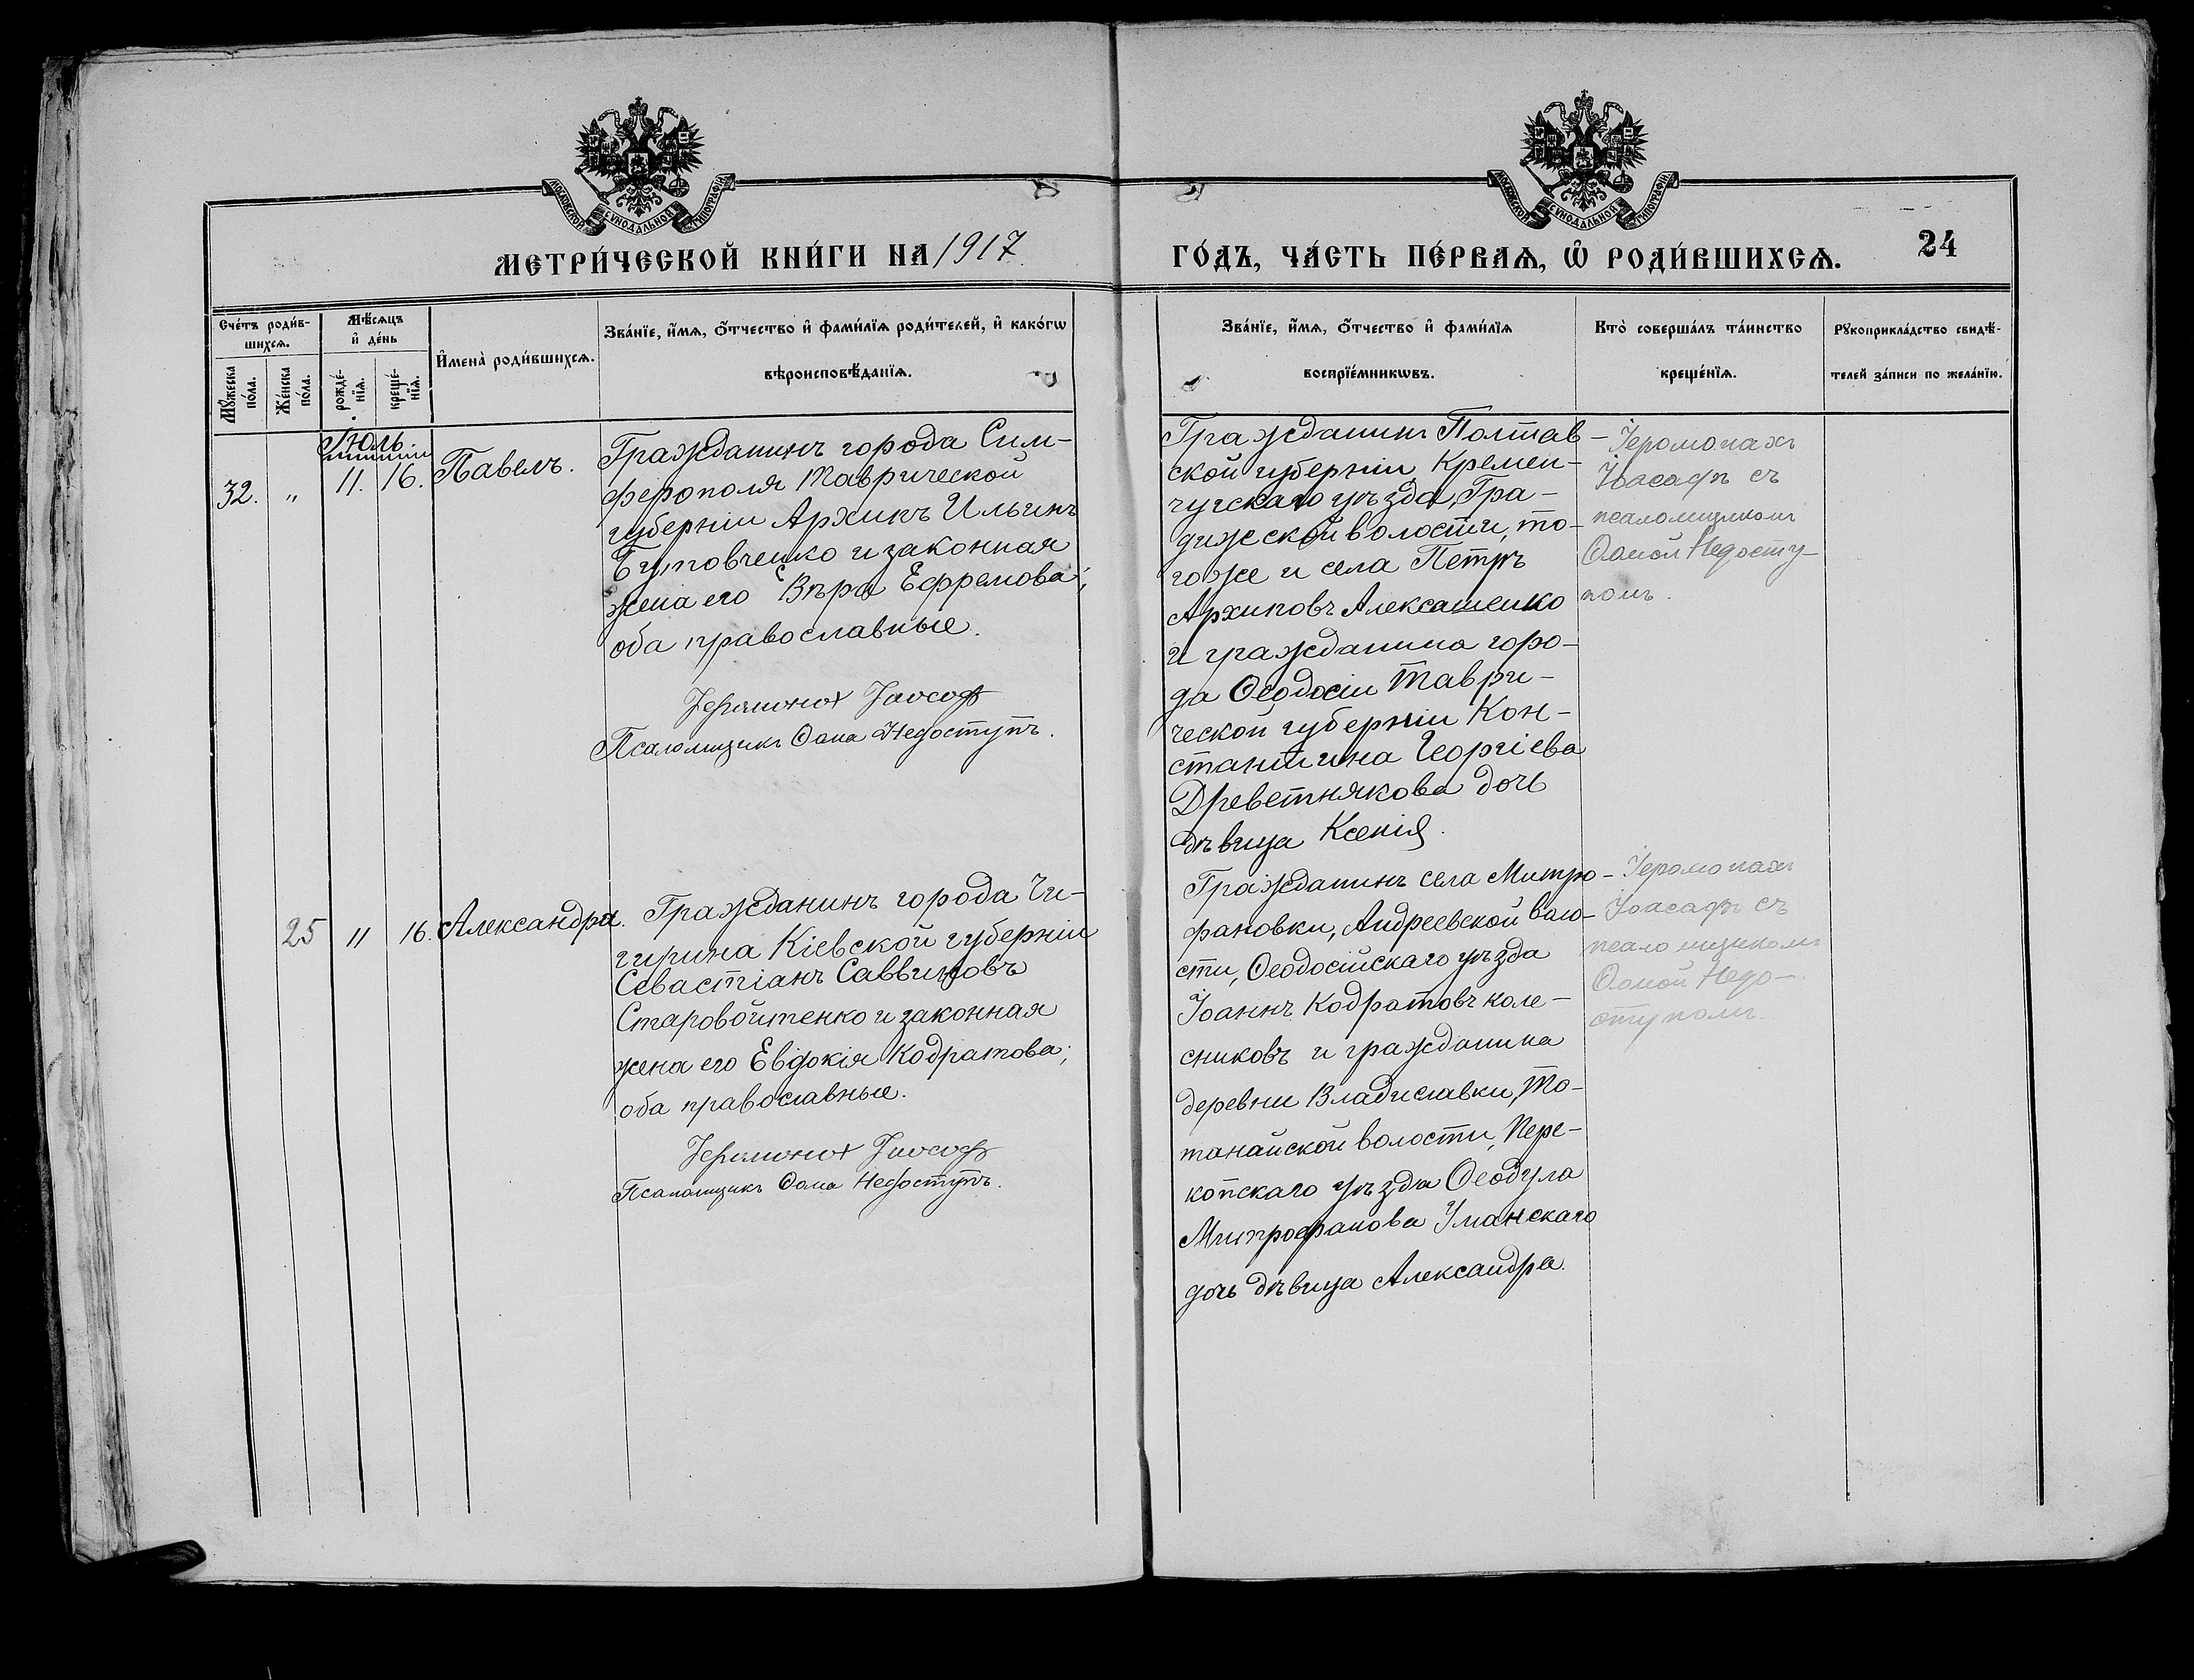 МОСКОВСКОЙ СѴНОДАЛЬНОЙ ТИПОГРАФІИ
МОСКОВСКОЙ СѴНОДАЛЬНОЙ ТИПОГРАФІИ
МЕТРИ́ЧЕСКОЙ КНИ́ГИ НА 1917
ГО́ДЪ, ЧА́СТЬ ПЕ́РВАѦ, Ѽ РОДИ́ВШИХСѦ.
24
Сче́тъ роди́в-
шихсѧ.
Мꙋ́жеска
по́ла.
Же́нска
по́ла.
Мѣ́сѧцъ
и҆ де́нь
рожде́-
нїѧ.
креще́-
нїѧ.
И҆мена̀ роди́вшихсѧ.
Зва́нїе, и҆́мѧ, ѻ҆́тчество и҆ фами́лїѧ роди́телей, и҆ како́гѡ
вѣроисповѣ́данїѧ.
Зва́нїе, и҆́мѧ, ѻ҆́тчество и҆ фами́лїѧ
воспрїе́мникѡвъ.
Кто̀ соверша́лъ та́инство
креще́нїѧ.
Рꙋкоприкла́дство свидѣ́-
телей за́писи по жела́нїю.
Іюль.
32. „ 11. 16. Павелъ.
Гражданинъ города Сим-
ферополя Таврической
губерніи Архипъ Ильинъ
Бутовченко и законная
жена его Вѣра Ефремова;
оба православные.
Іеромонах Іоасаф
Псаломщикъ Ѳома Недоступъ.
Гражданинъ Полтав-
ской губерніи Кремен-
чугскаго уѣзда, Гра-
дижской волости, то-
гоже и села Петръ
Архиповъ Алексашенко
и гражданина горо-
да Ѳеодосіи Таври-
ческой губерніи Кон-
стантина Георгіева
Древетнякова дочь
дѣвица Ксенія.
Іеромонахъ
Іоасафъ съ
псаломщикомъ
Ѳомой Недосту-
помъ.
25 11 16. Александра.
Гражданинъ города Чи-
гирина Кіевской губерніи
Севастіанъ Саввиновъ
Старовойтенко и законная
жена его Евдокія Кодратова;
оба православные.
Іеромонах Іоасаф
Псаломщикъ Ѳома Недоступъ.
Гражданинъ села Митро-
фановки, Андреевской воло-
сти, Ѳеодосійскаго уѣзда
Іоаннъ Кодратовъ коле-
сниковъ и гражданина
деревни Владиславки, То-
танайской волости, Пере-
копскаго уѣзда Ѳеодула
Митрофанова Уманскаго
дочь дѣвица Александра.
Іеромонахъ
Іоасафъ съ
псаломщикомъ
Ѳомой Недо-
ступомъ.